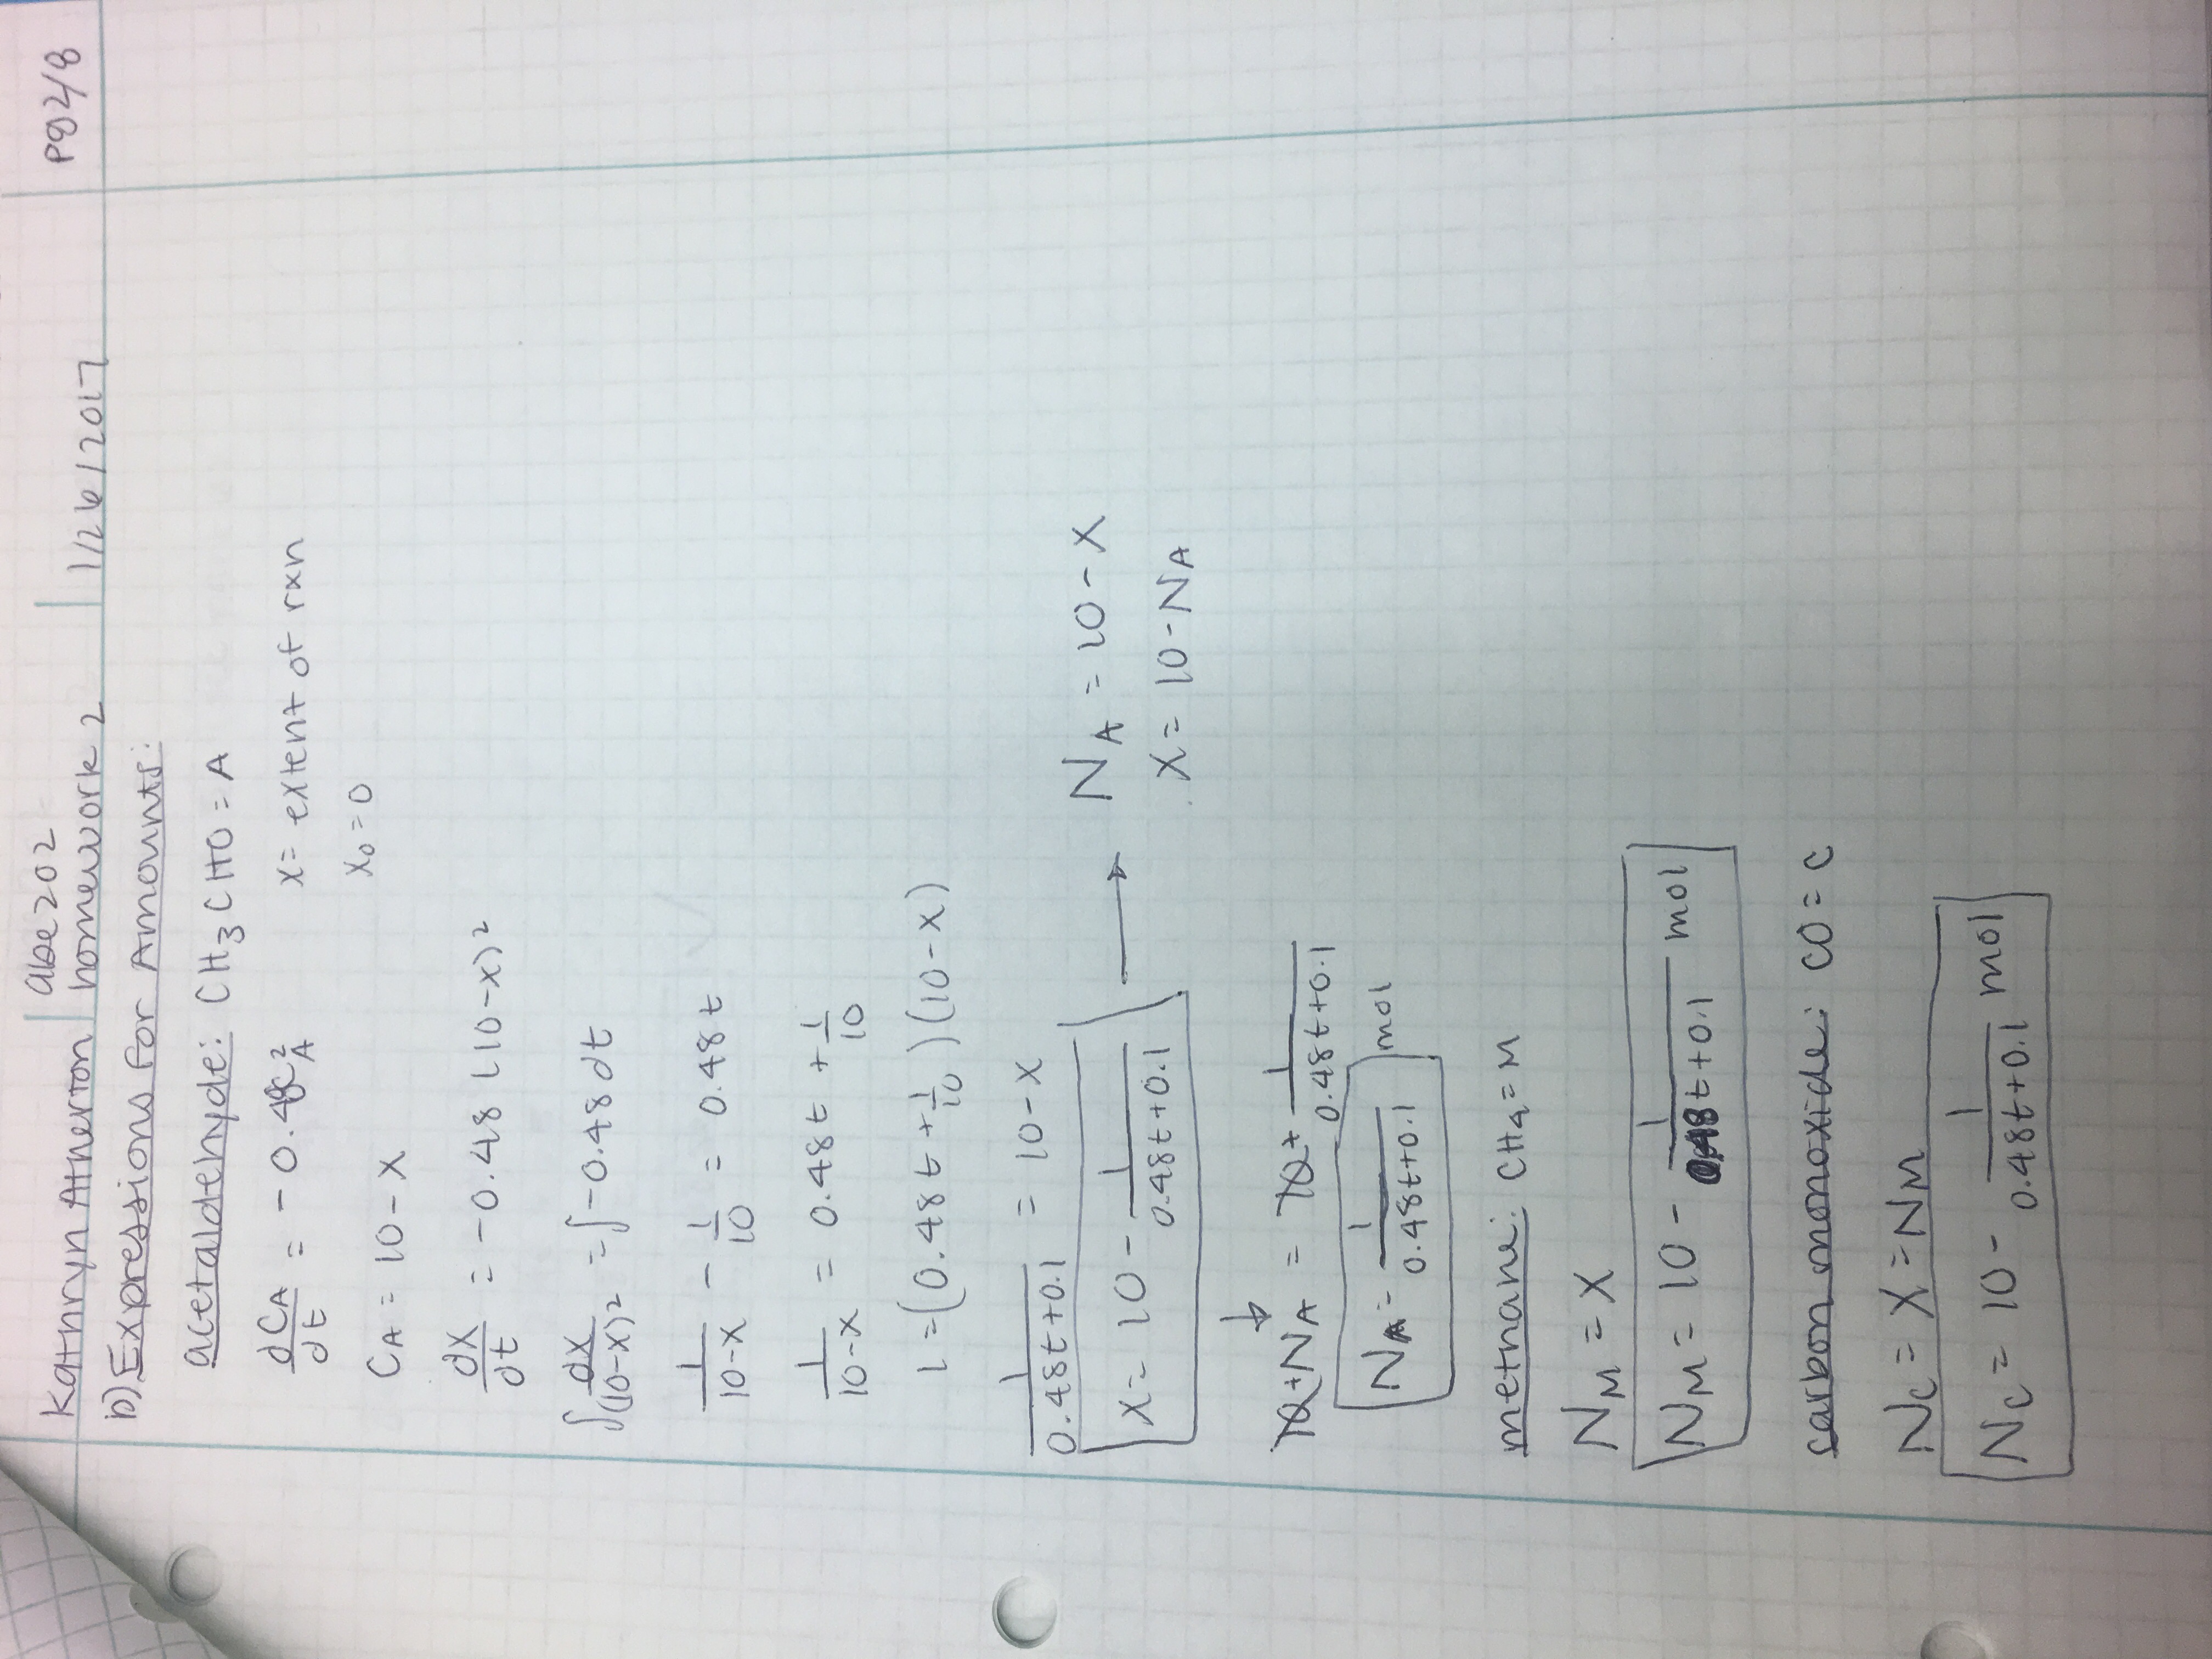 Kathryn Atherton
abe 202
homework 2
1/26/2017
pg 2/8
b) Expressions for Amounts:
acetaldehyde: CH₃CHO = A
dC_A/dt = -0.48C_A²
x = extent of rxn
x₀ = 0
C_A = 10 - x
dx/dt = -0.48 (10-x)²
∫ dx/(10-x)² = ∫ -0.48 dt
1/(10-x) - 1/10 = 0.48t
1/(10-x) = 0.48t + 1/10
1 = (0.48t + 1/10)(10-x)
1/(0.48t+0.1) = 10-x
x = 10 - 1/(0.48t+0.1) → N_A = 10 - x
x = 10 - N_A
↓
10 + N_A = 10 + 1/(0.48t+0.1)
N_A = 1/(0.48t+0.1) mol
methane: CH₄ = M
N_M = x
N_M = 10 - 1/(0.48t+0.1) mol
carbon monoxide: CO = C
N_C = x = N_M
N_C = 10 - 1/(0.48t+0.1) mol